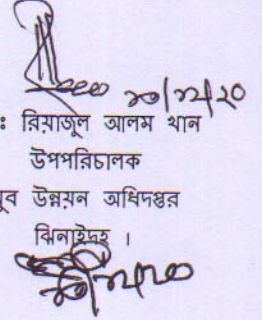 ঃ রিয়াজুল আলম খান
উপপরিচালক
যুব উন্নয়ন অধিদপ্তর
ঝিনাইদহ ।